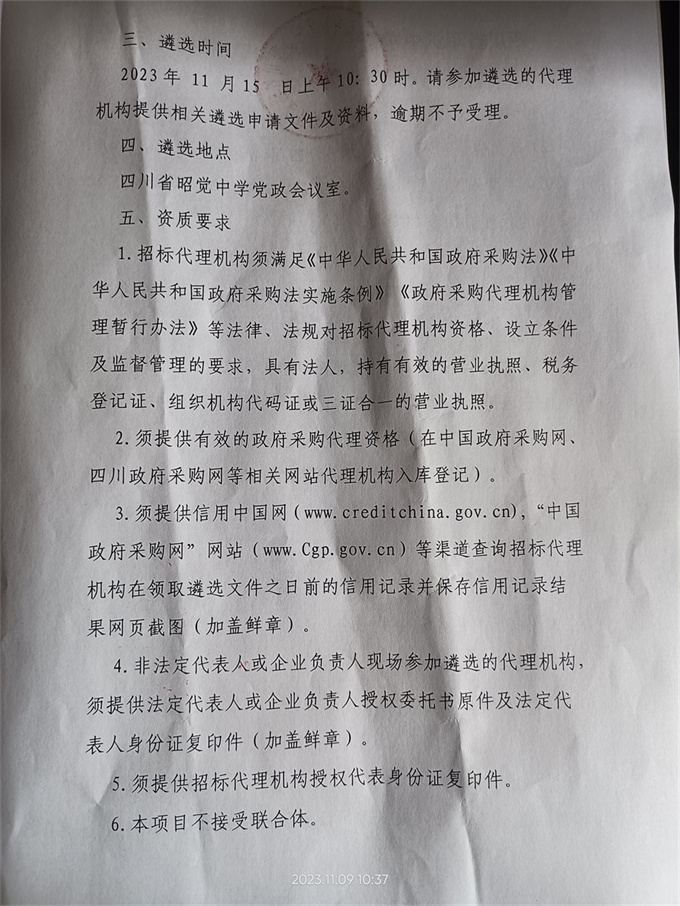 三、遴选时间
2023年 11 月15 日上午10：30时。请参加遴选的代理
机构提供相关遴选申请文件及资料，逾期不予受理。
四、遴选地点
四川省昭觉中学党政会议室。
五、资质要求
1.招标代理机构须满足《中华人民共和国政府采购法》《中
华人民共和国政府采购法实施条例》《政府采购代理机构管
理暂行办法》等法律、法规对招标代理机构资格、设立条件
及监督管理的要求，具有法人，持有有效的营业执照、税务
登记证、组织机构代码证或三证合一的营业执照。
2.须提供有效的政府采购代理资格（在中国政府采购网、
四川政府采购网等相关网站代理机构入库登记）。
3.须提供信用中国网（www.creditchina.gov.cn），“中国
政府采购网”网站（www.Cgp.gov.cn）等渠道查询招标代理
机构在领取遴选文件之日前的信用记录并保存信用记录结
果网页截图（加盖鲜章）。
4.非法定代表人或企业负责人现场参加遴选的代理机构，
须提供法定代表人或企业负责人授权委托书原件及法定代
表人身份证复印件（加盖鲜章）。
5.须提供招标代理机构授权代表身份证复印件。
6.本项目不接受联合体。
2023.11.09 10:37